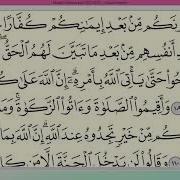 ونَكُم مِّنۢ بَعْدِ إِيمَٰنِكُمْ كُفَّارًا
أَنفُسِهِم مِّنۢ بَعْدِ مَا تَبَيَّنَ لَهُمُ ٱلْحَقُّ
حُوا۟ حَتَّىٰ يَأْتِىَ ٱللَّهُ بِأَمْرِهِۦٓ إِنَّ ٱللَّهَ عَلَىٰ كُ
وَأَقِيمُوا۟ ٱلصَّلَوٰةَ وَءَاتُوا۟ ٱلزَّكَوٰةَ وَمَ
كُم مِّنْ خَيْرٍ تَجِدُوهُ عِندَ ٱللَّهِ إِنَّ ٱللَّهَ بِمَا
١١٠ وَقَالُوا۟ لَن يَدْخُلَ ٱلْجَنَّةَ إِلَّا مَن كَا